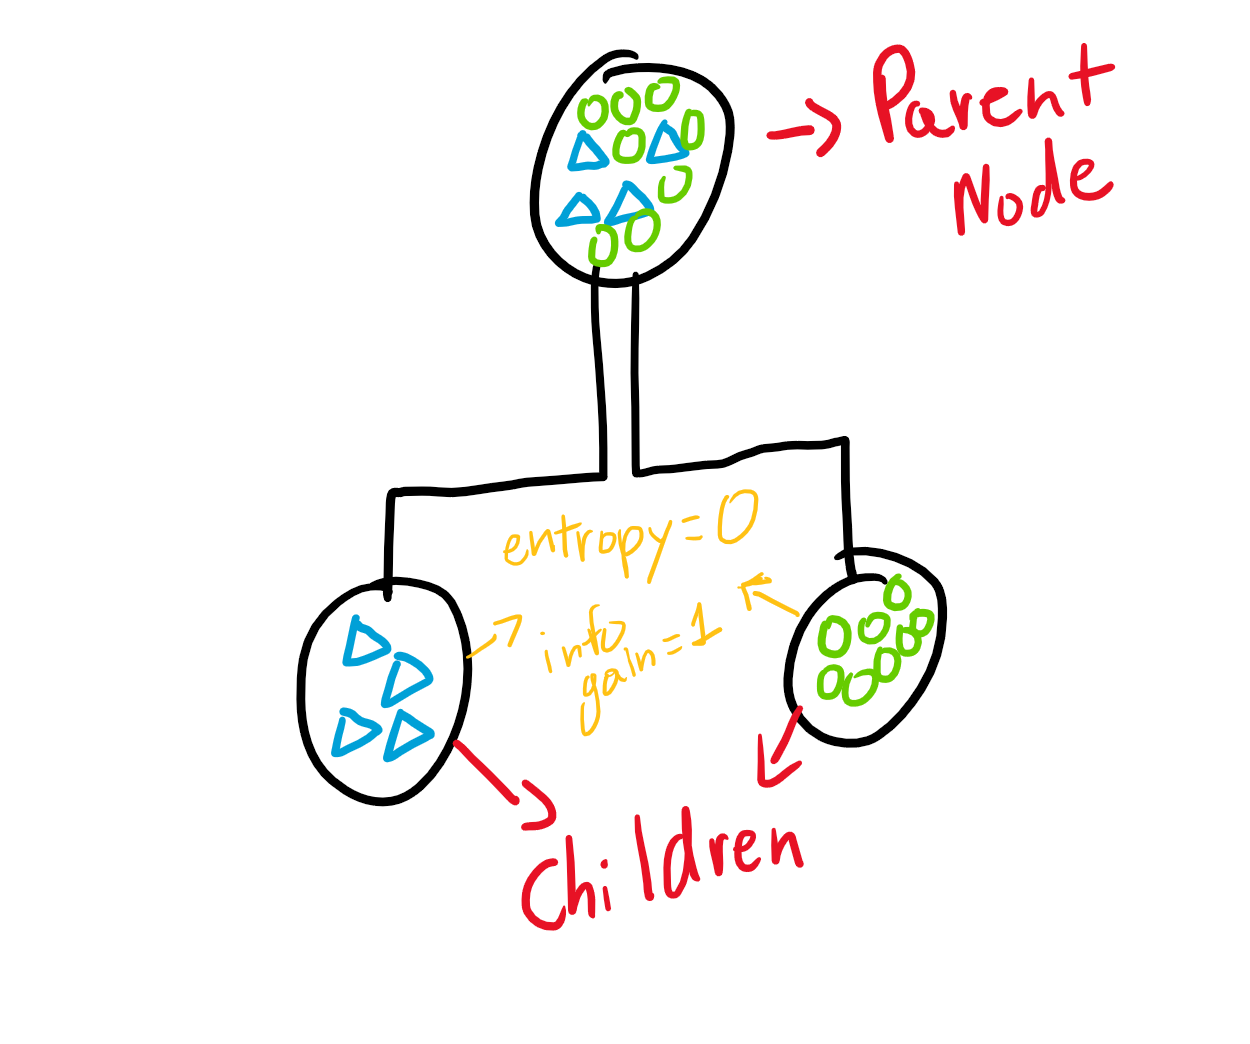 Parent
Node
entropy=0
info
gain=1
children